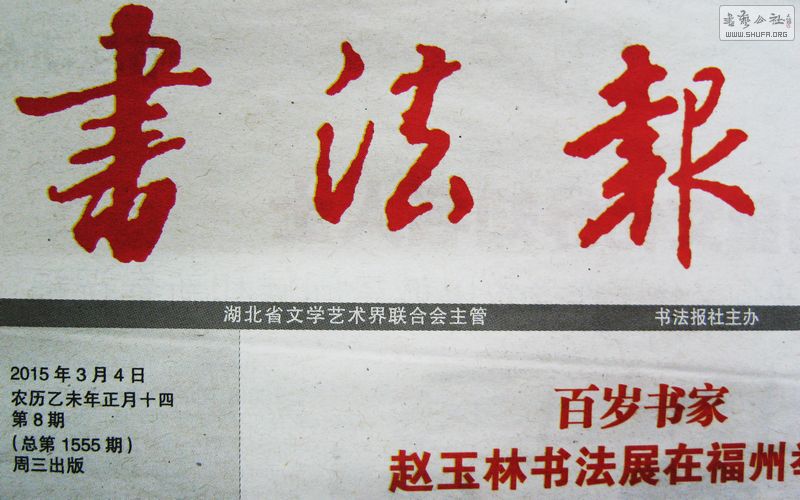 書藝公社
WWW.SHUFA.ORG
書法報
湖北省文学艺术界联合会主管
书法报社主办
2015年3月4日
农历乙未年正月十四
第8期
(总第1555期)
周三出版
百岁书家
赵玉林书法展在福州